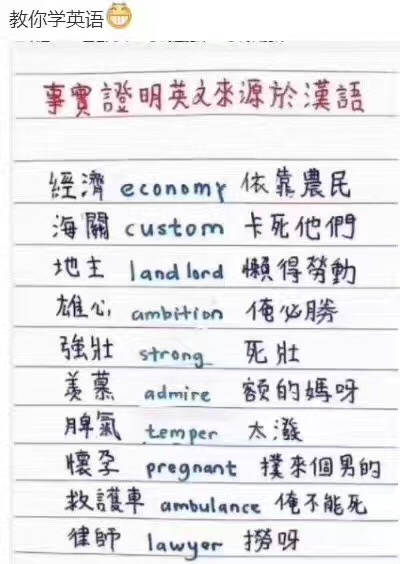 教你学英语
事實證明英文來源於漢語
經濟 economy 依靠農民
海關 custom 卡死他們
地主 landlord 懶得勞動
雄心 ambition 俺必勝
強壯 strong 死壯
羨慕 admire 額的媽呀
脾氣 temper 太潑
懷孕 pregnant 撲來個男的
救護車 ambulance 俺不能死
律師 lawyer 撈呀